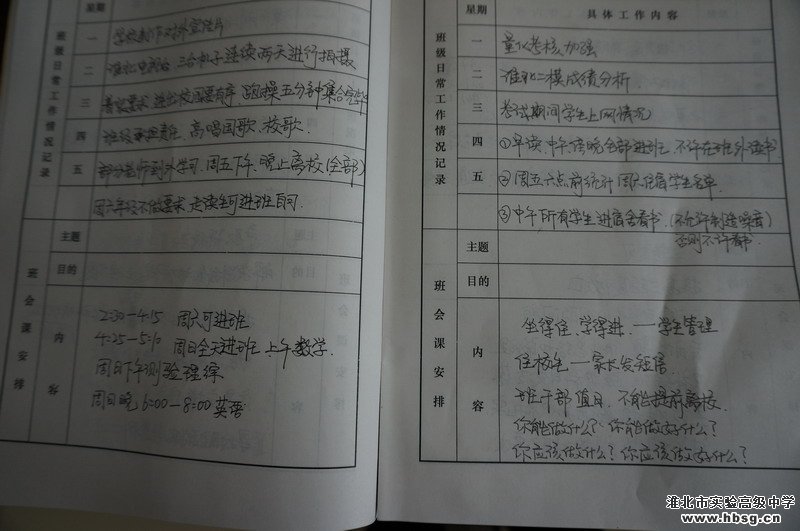 班级日常工作情况记录
一 学校
二 连续两天进行拍摄
三 进出校园要有序 跑操五分钟集合完毕
四 班级承担责任、高唱国歌、校歌.
五 外学习. 周五下午、晚上离校(全部)
周六年级不做要求 走读生可进班自习.
班会课安排
主题
目的
内容
2:30-4:15 周六可进班
4:25-5:10 周日全天进班 上午数学.
周日下午测验理综
周日晚 6:00-8:00 英语
星期 具体工作内容
班级日常工作情况记录
一 量化考核加强
二 淮北二模成绩分析.
三 考试期间学生上网情况
四 ①早读、中午传统全部进班 不许在班外读书
五 ②周五六点前统计周六住宿学生名单.
③中午所有学生进宿舍看书.(不允许制造噪音)
否则不许看书.
班会课安排
主题
目的
内容
坐得住, 学得进. 一学生管理
住校生一家长发短信
班干部值日. 不能提前离校.
你能做什么? 你能做好什么?
你应该做什么? 你应该做好什么?
淮北市实验高级中学
www.hbsg.cn